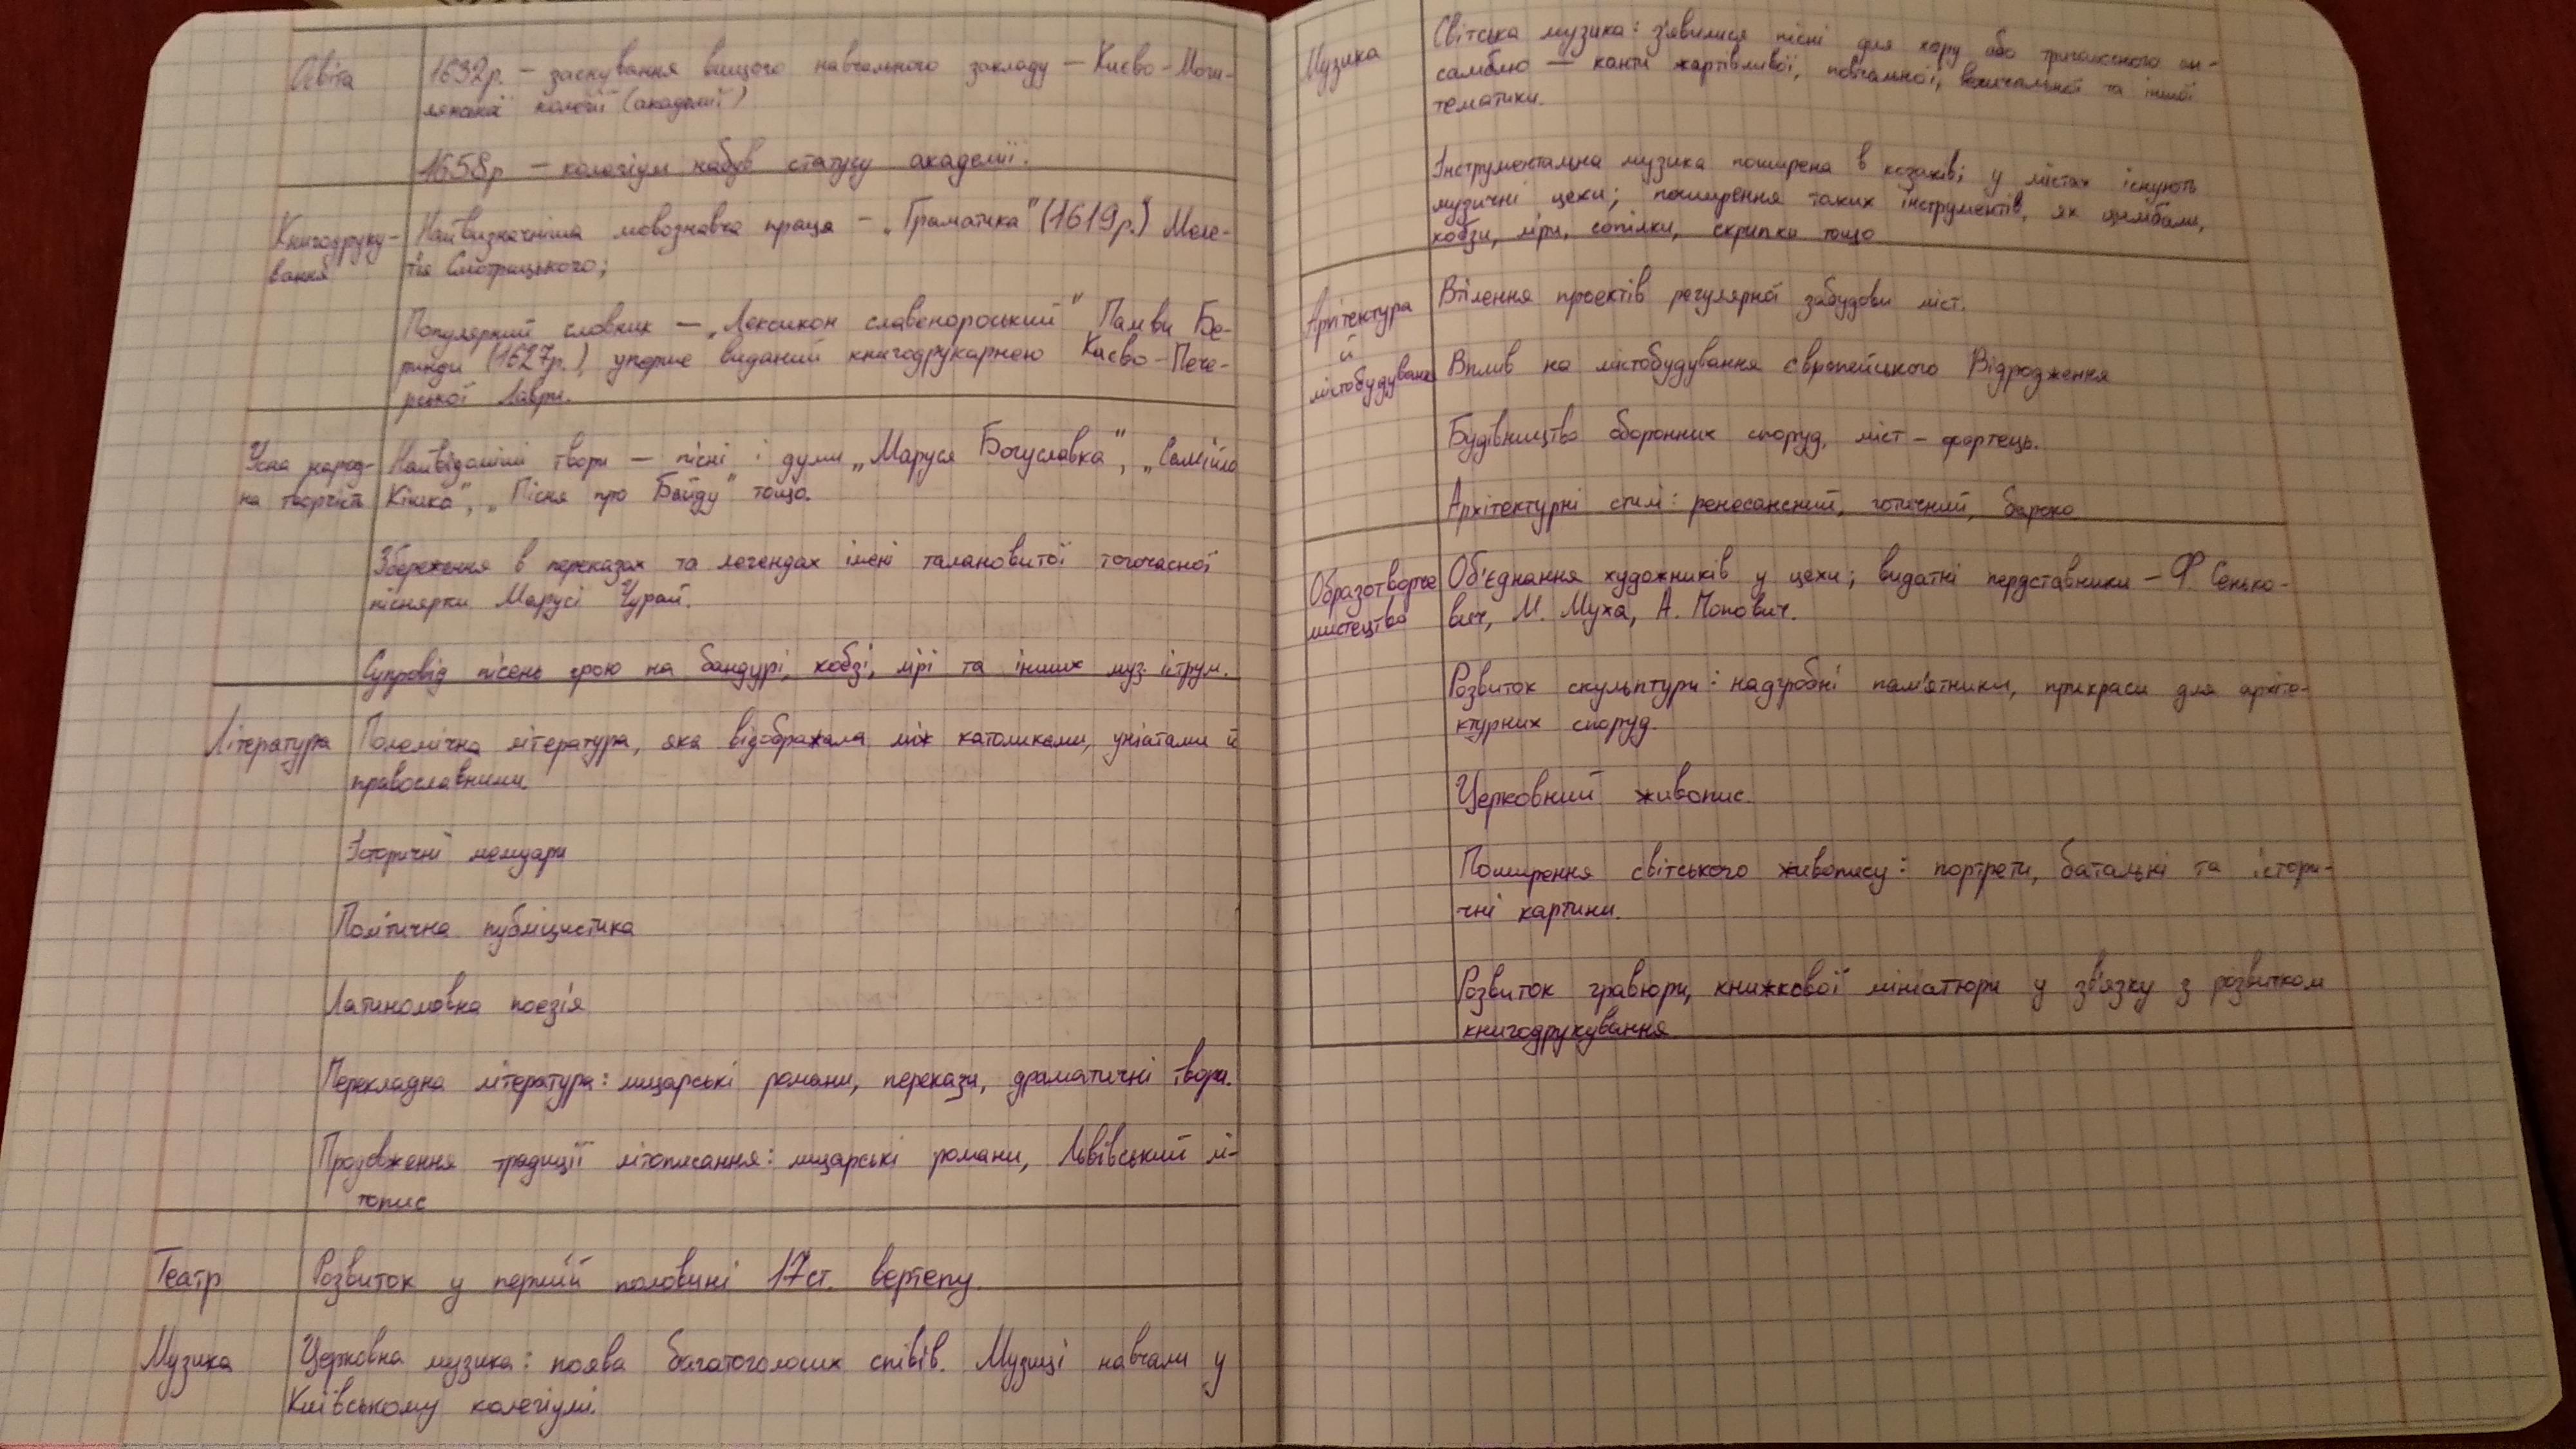 Освіта
1632р. – заснування вищого навчального закладу – Києво-Моги-
лянської колегії (академії)
1658р – колегіум набув статусу академії.
Книгодруку-
вання
Найвизначніша мовознавча праця – „Граматика" (1619р.) Меле-
тія Смотрицького;
Популярний словник – „Лексикон славенороський" Памви Бе-
ринди (1627р.), уперше виданий книгодрукарнею Києво-Пече-
рської Лаври.
Усна народ-
на творчість
Найвідоміші твори – пісні і думи „Маруся Богуславка", „Самійло
Кішка", „Пісня про Байду" тощо.
Збереження в переказах та легендах імені талановитої тогочасної
піснярки Марусі Чурай.
Супровід пісень грою на бандурі, кобзі, лірі та інших муз. іструм.
Література
Полемічна література, яка відображала між католиками, уніатами й
православними
Історичні мемуари
Політична публіцистика
Латиномовна поезія
Перекладна література: лицарські романи, перекази, драматичні твори.
Продовження традиції літописання: лицарські романи, Львівський лі-
топис
Театр
Розвиток у першій половині 17ст. вертепу.
Музика
Церковна музика: поява багатоголосих співів. Музиці навчали у
Київському колегіумі.
Музика
Світська музика: з'явилися пісні для хору або триголосного ан-
самблю – канти жартівливої, повчальної, величальної та іншої
тематики.
Інструментальна музика поширена в козаків; у містах існують
музичні цехи; поширення таких інструментів, як цимбали,
кобзи, ліри, сопілки, скрипка тощо
Архітектура
й
містобудування
Втілення проектів регулярної забудови міст.
Вплив на містобудування європейського Відродження
Будівництво оборонних споруд, міст – фортець.
Архітектурні стилі: ренесансний, готичний, бароко
Образотворче
мистецтво
Об'єднання художників у цехи; видатні пердставники – Ф. Сенько-
вич, М. Муха, А. Попович.
Розвиток скульптури: надгробні пам'ятники, прикраси для архіте-
ктурних споруд.
Церковний живопис.
Поширення світського живопису: портрети, батальні та істори-
чні картини.
Розвиток гравюри, книжкової мініатюри у зв'язку з розвитком
книгодрукування.